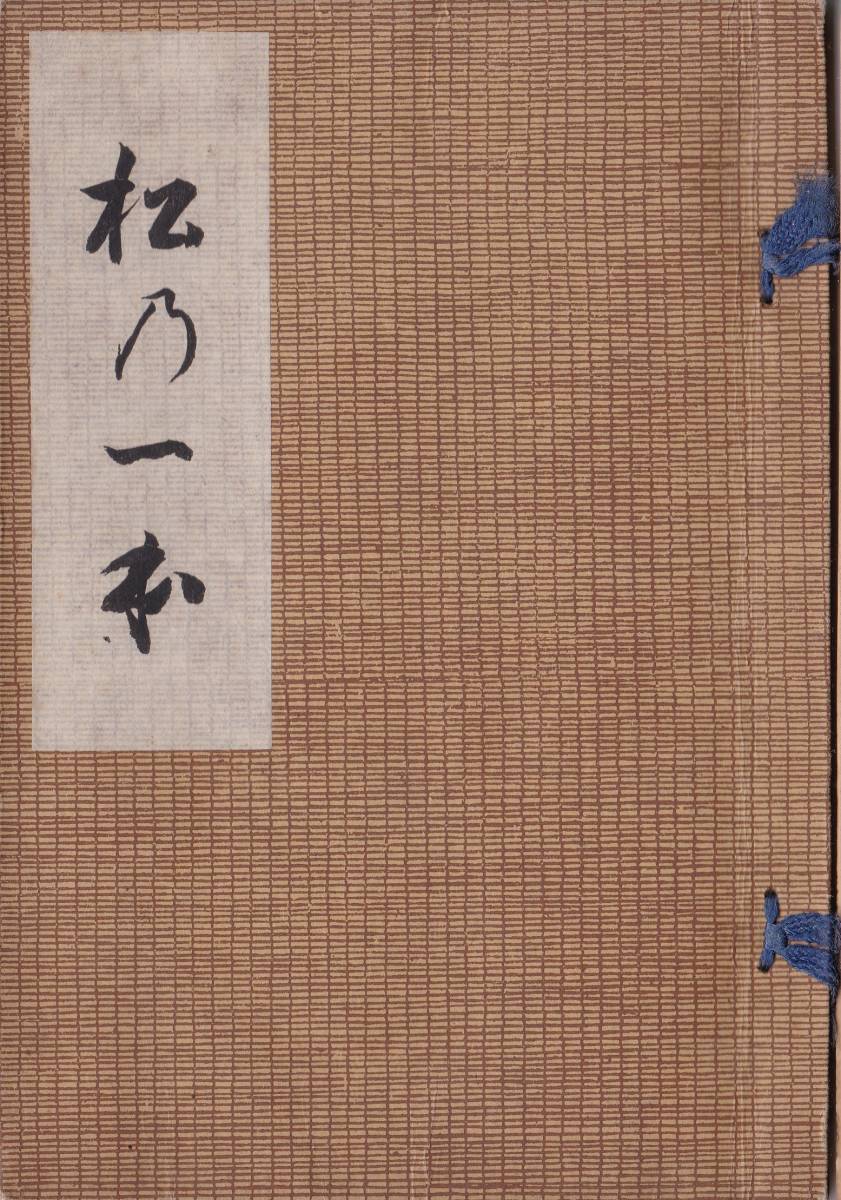 松乃一本